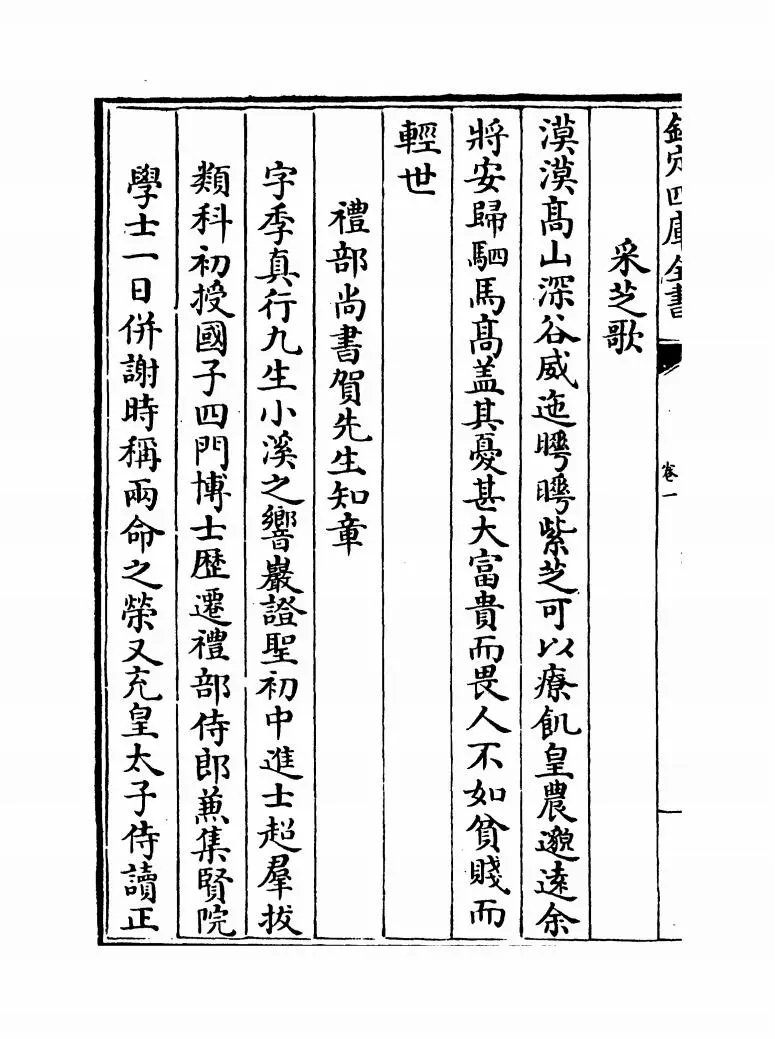 欽定四庫全書
卷一
采芝歌
漠漠髙山深谷威迤曄曄紫芝可以療飢皇農邈逺余
將安歸駟馬髙盖其憂甚大富貴而畏人不如貧賤而
輕世
禮部尚書賀先生知章
字季真行九生小溪之響巖證聖初中進士超羣拔
類科初授國子四門博士歴遷禮部侍郎兼集賢院
學士一日併謝時稱兩命之榮又充皇太子侍讀正